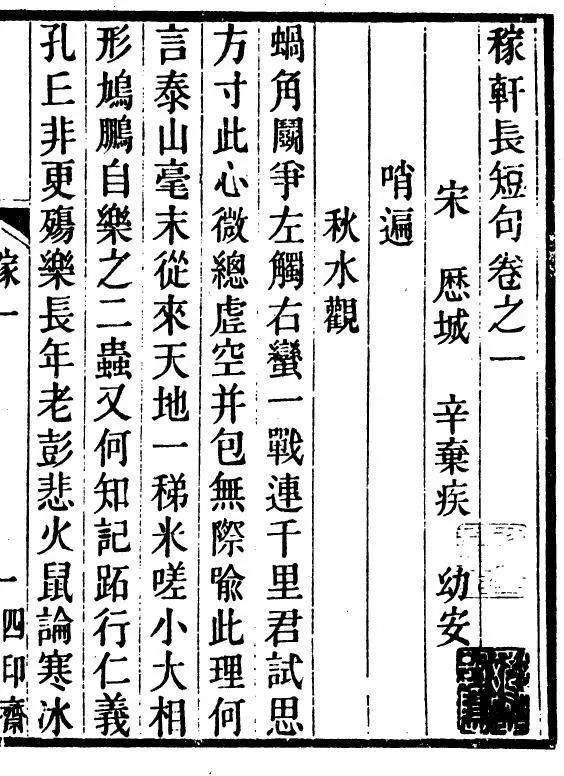 稼軒長短句卷之一
宋 厯城 辛棄疾 幼安
哨遍
秋水觀
蝸角鬭爭左觸右蠻一戰連千里君試思
方寸此心微總虛空并包無際喩此理何
言泰山毫末從來天地一稊米嗟小大相
形鳩鵬自樂之二蟲又何知記跖行仁義
孔丘非更殤樂長年老彭悲火鼠論寒冰
稼一
一
四印齋